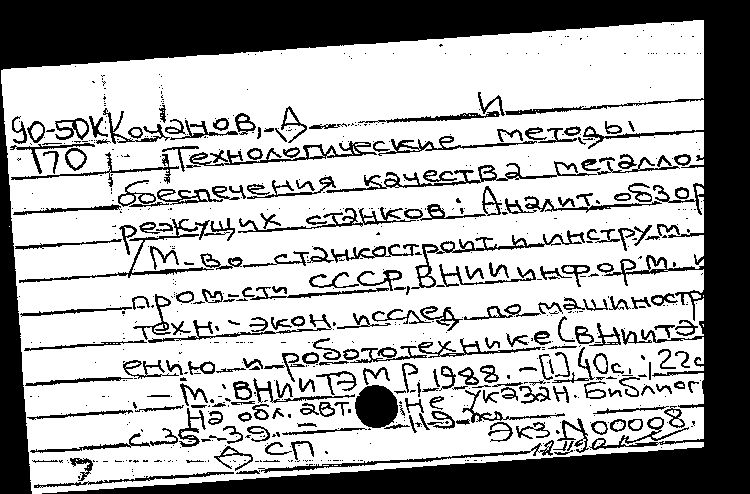 И
90-50К Кочанов, А
170 Технологические методы
обеспечения качества металло-
режущих станков: Аналит. обзор
/ М-во станкостроит. и инструм.
пром-сти СССР, ВНИИ информ. и
техн.-экон. исслед. по машиностр
ению и робототехнике (ВНИИТЭ
. – М.: ВНИИТЭМР, 1988. – [1], 40с.; 22с
На обл. авт. не указан. Библиог
с. 35-39. –
Экз. N00008.
А СП. 12 II 90